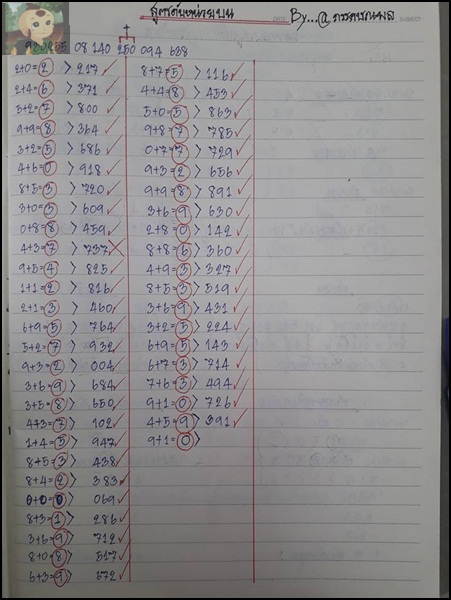 สูตรดับหน่วยบน By...@
08 140 250 094 638
2+0=2 > 217
2+4=6 > 371
5+2=7 > 800
9+9=8 > 364
3+2=5 > 686
4+6=0 > 918
8+5=3 > 720
3+0=3 > 609
0+8=8 > 459
4+3=7 > 737
9+5=4 > 825
1+1=2 > 816
2+1=3 > 460
6+9=5 > 764
5+2=7 > 932
9+3=2 > 004
3+6=9 > 684
3+5=8 > 650
4+3=7 > 102
1+4=5 > 947
8+5=3 > 438
8+4=2 > 383
0+0=0 > 069
8+3=1 > 286
3+6=9 > 712
8+0=8 > 517
6+3=9 > 572
8+7=5 > 116
4+4=8 > 453
5+0=5 > 863
9+8=7 > 785
0+7=7 > 729
9+3=2 > 656
9+9=8 > 891
3+6=9 > 630
2+8=0 > 142
8+8=6 > 360
4+9=3 > 327
8+5=3 > 519
3+6=9 > 431
3+2=5 > 224
6+9=5 > 143
6+7=3 > 714
7+6=3 > 494
9+1=0 > 726
4+5=9 > 391
9+1=0 >